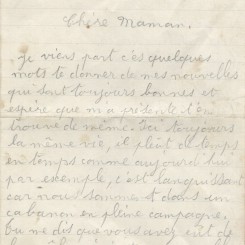 Chère Maman.
Je viens part c'és quelques
mots te donner de mes nouvelles
qui sont toujours bonnes et
espère que m'a présente t'en
trouve de même. Ici toujours
la même vie, il pleut de temps
en temps comme aujourd'hui
par exemple, c'est languissant
car nous sommes dans un
cabanon en pleine campagne.
tu me dis que vous avez